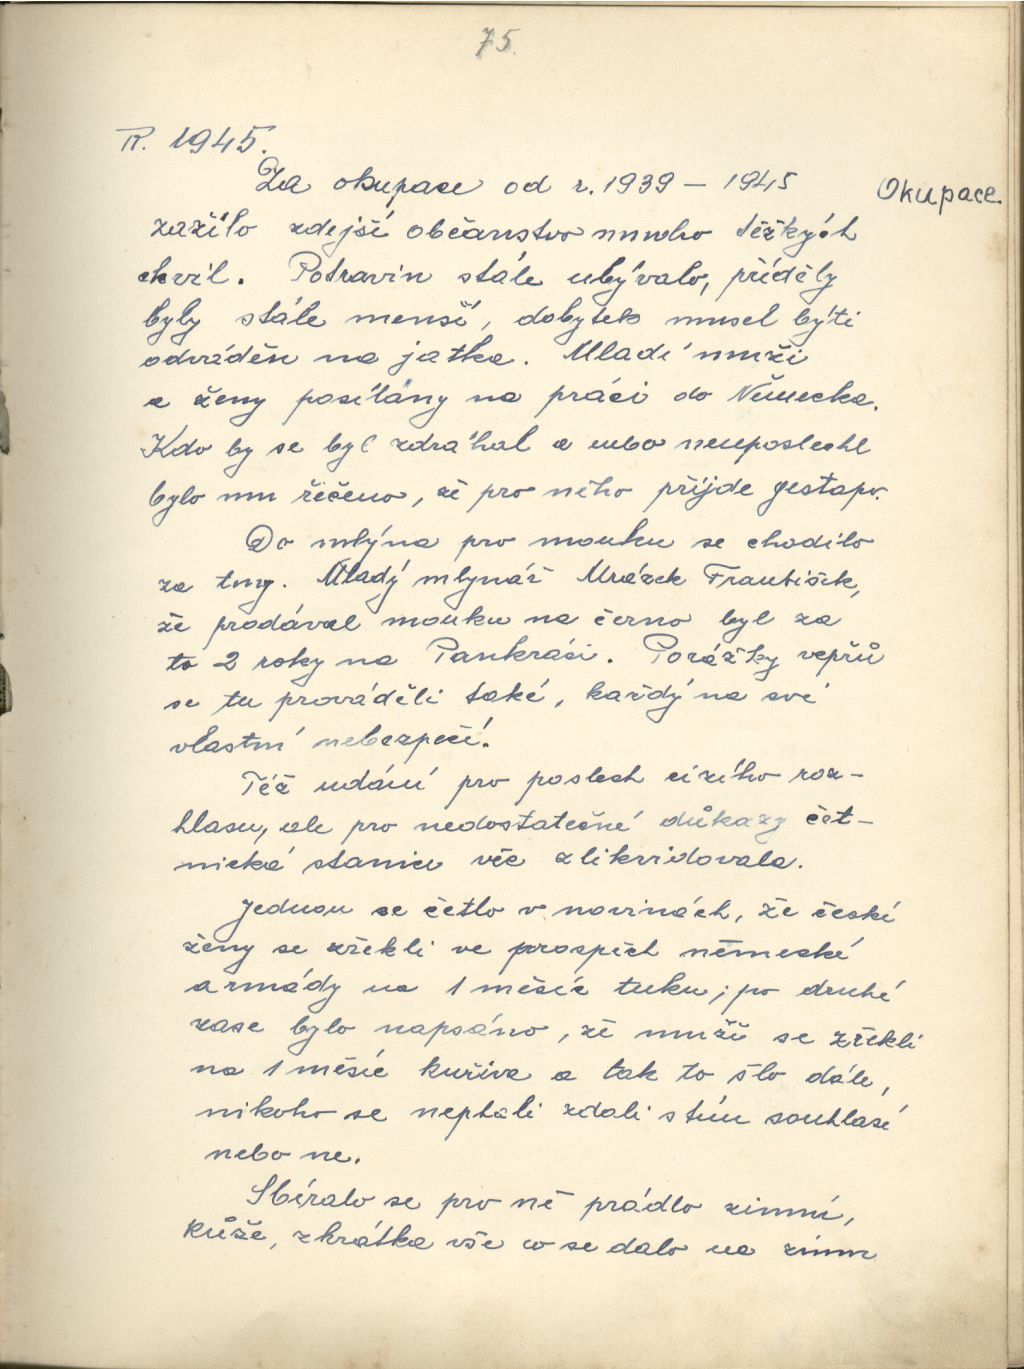 75.
R. 1945.
Za okupace od r. 1939 – 1945
Okupace.
zažilo zdejší občanstvo mnoho těžkých
chvil. Potravin stále ubývalo, příděly
byly stále menší, dobytek musel býti
odváděn na jatka. Mladí muži
a ženy posílány na práci do Německa.
Kdo by se byl zdráhal a nebo neuposlechl
bylo mu řečeno, že pro něho přijde gestapo.
Do mlýna pro mouku se chodilo
za tmy. Mladý mlynář Mrázek František,
že prodával mouku na černo byl za
to 2 roky na Pankráci. Porážky vepřů
se tu prováděli také, každý na své
vlastní nebezpečí.
Též udání pro poslech cizího roz-
hlasu, ale pro nedostatečné důkazy čet-
nická stanice věc zlikvidovala.
Jednou se četlo v novinách, že české
ženy se zřekli ve prospěch německé
armády na 1 měsíc tuku; po druhé
zase bylo napsáno, že muži se zřekli
na 1 měsíc kuřiva a tak to šlo dále,
nikoho se neptali zdali s tím souhlasí
nebo ne.
Sbíralo se pro ně prádlo zimní,
kůže, zkrátka vše co se dalo na zimu